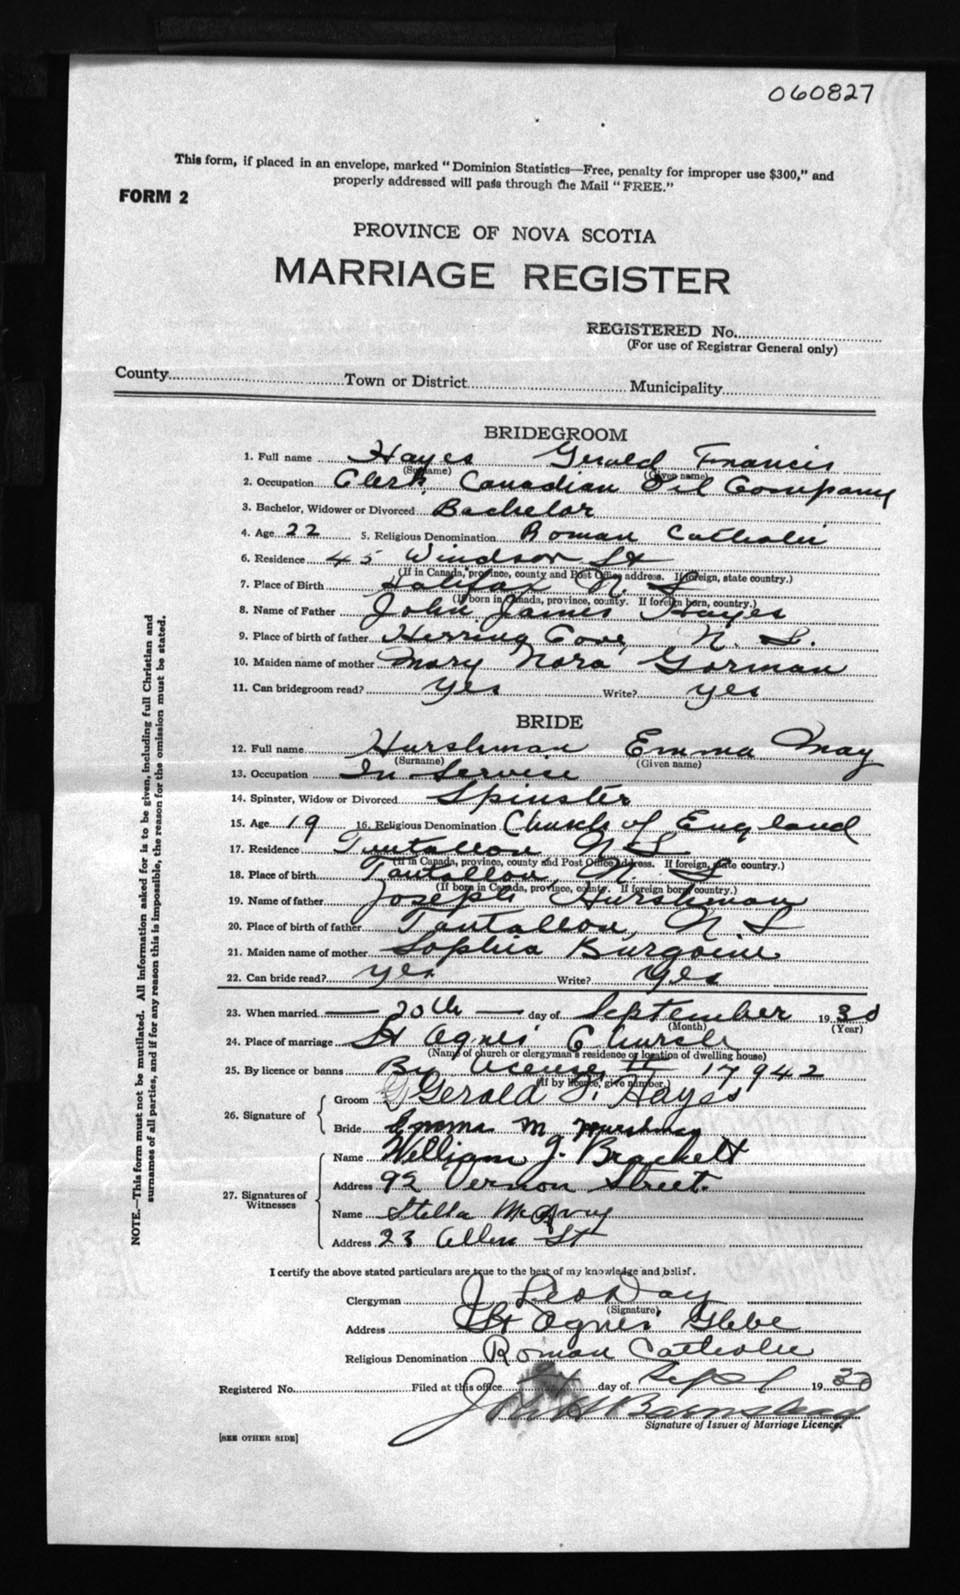 060827
This form, if placed in an envelope, marked "Dominion Statistics—Free, penalty for improper use $300," and
properly addressed will pass through the Mail "FREE."
FORM 2
PROVINCE OF NOVA SCOTIA
MARRIAGE REGISTER
REGISTERED No.
(For use of Registrar General only)
County Town or District Municipality
BRIDEGROOM
1. Full name Hayes Gerald Francis
(Surname) (Given name)
2. Occupation Clerk, Canadian Oil Company
3. Bachelor, Widower or Divorced Bachelor
4. Age 22 5. Religious Denomination Roman Catholic
6. Residence 45 Windsor St
(If in Canada, province, county and Post Office address. If foreign, state country.)
7. Place of Birth Halifax N. S
(If born in Canada, province, county. If foreign born, country.)
8. Name of Father John James Hayes
9. Place of birth of father Herring Cove, N. S.
10. Maiden name of mother Mary Nora Gorman
11. Can bridegroom read? yes Write? yes
BRIDE
12. Full name Hurshman Emma May
(Surname) (Given name)
13. Occupation In Service
14. Spinster, Widow or Divorced Spinster
15. Age 19 16. Religious Denomination Church of England
17. Residence Tantallon N S
(If in Canada, province, county and Post Office address. If foreign, state country.)
18. Place of birth Tantallon, N. S
(If born in Canada, province, county. If foreign born, country.)
19. Name of father Joseph Hurshman
20. Place of birth of father Tantallon, N S
21. Maiden name of mother Sophia Burgoine
22. Can bride read? yes Write? yes
23. When married 20th day of September 1930
(Month) (Year)
24. Place of marriage St Agnes Church
(Name of church or clergyman's residence or location of dwelling house)
25. By licence or banns By license 17942
(If by licence, give number.)
26. Signature of
Groom Gerald F. Hayes
Bride Emma M Hurshman
27. Signatures of Witnesses
Name William J. Brackett
Address 92 Vernon Street.
Name Stella
Address 23 Allen St
I certify the above stated particulars are true to the best of my knowledge and belief.
Clergyman J. Leo Day
(Signature)
Address St Agnes Glebe
Religious Denomination Roman Catholic
Registered No. Filed at this office day of Sept 1930
Signature of Issuer of Marriage Licence.
[SEE OTHER SIDE]
NOTE.—This form must not be mutilated. All information asked for is to be given, including full Christian and
surnames of all parties, and if for any reason this is impossible, the reason for the omission must be stated.